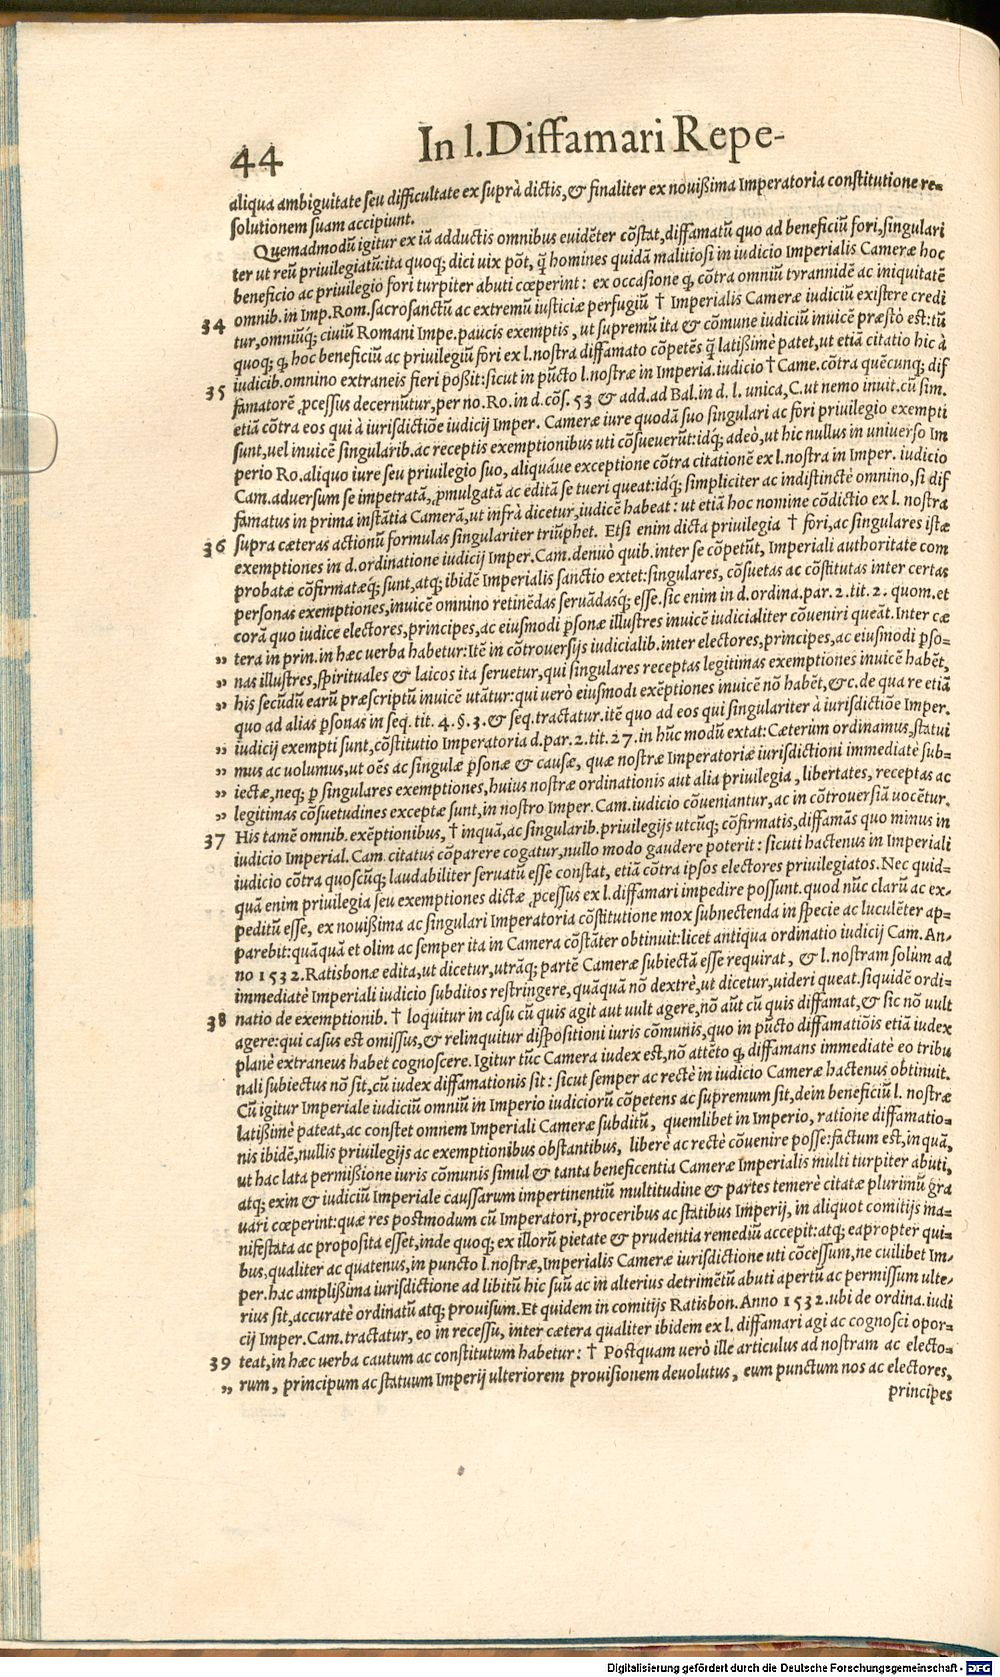 44
In l. Diffamari Repe-
aliqua ambiguitate seu difficultate ex suprà dictis, & finaliter ex nouißima Imperatoria constitutione re-
solutionem suam accipiunt.
Quemadmodũ igitur ex iã adductis omnibus euidẽter cõstat, diffamatũ quo ad beneficiũ fori, singulari
ter ut reũ privilegiatũ: ita quoq; dici uix põt, q̃ homines quidã malitiosi in iudicio Imperialis Cameræ hoc
beneficio ac priuilegio fori turpiter abuti cœperint: ex occasione q, cõtra omniũ tyrannidẽ ac iniquitatẽ
omnib. in Imp. Rom. sacrosanctũ ac extremũ iusticiæ perfugiũ † Imperialis Cameræ iudiciũ existere credi
34 tur, omniũq; ciuiũ Romani Impe. paucis exemptis, ut supremũ ita & cõmune iudiciũ inuicẽ præstò est: tũ
quoq; q, hoc beneficiũ ac priuilegiũ fori ex l. nostra diffamato cõpetẽs q̃ latißimè patet, ut etiã citatio hic à
35 iudicib. omnino extraneis fieri poßit: sicut in pũcto l. nostræ in Imperia. iudicio † Came. cõtra quẽcunq; dif
famatorẽ ꝓcessus decernũtur, per no. Ro. in d. cõs. 53 & add. ad Bal. in d. l. unica, C. ut nemo inuit. cũ sim.
etiã cõtra eos qui à iurisdictiõe iudicij Imper. Cameræ iure quodã suo singulari ac fori priuilegio exempti
sunt, uel inuicẽ singularib. ac receptis exemptionibus uti cõsueuerũt: idq; adeò, ut hic nullus in uniuerso Im
perio Ro. aliquo iure seu priuilegio suo, aliquáue exceptione cõtra citationẽ ex l. nostra in Imper. iudicio
Cam. aduersum se impetratã, ꝓmulgatã ac editã se tueri queat: idq; simpliciter ac indistinctè omnino, si dif
famatus in prima instãtia Camerã, ut infrà dicetur, iudicẽ habeat: ut etiã hoc nomine cõdictio ex l. nostra
supra cæteras actionũ formulas singulariter triũphet. Etsi enim dicta priuilegia † fori, ac singulares istæ
36 exemptiones in d. ordinatione iudicij Imper. Cam. denuò quib. inter se cõpetũt, Imperiali authoritate com
probatæ cõfirmatæq; sunt, atq; ibidẽ Imperialis sanctio extet: singulares, cõsuetas ac cõstitutas inter certas
personas exemptiones, inuicẽ omnino retinẽdas seruãdasq; esse. sic enim in d. ordina. par. 2. tit. 2. quom. et
corã quo iudice electores, principes, ac eiusmodi p̃sonæ illustres inuicẽ iudicialiter cõueniri queãt. Inter cæ
tera in prin. in hæc uerba habetur: Itẽ in cõtrouersijs iudicialib. inter electores, principes, ac eiusmodi p̃so-
„ nas illustres, spirituales & laicos ita seruetur, qui singulares receptas legitimas exemptiones inuicẽ habẽt,
„ his secũdũ earũ præscriptũ inuicẽ utãtur: qui uerò eiusmodi exẽptiones inuicẽ nõ habẽt, &c. de qua re etiã
„ quo ad alias p̃sonas in seq. tit. 4. §. 3. & seq. tractatur. itẽ quo ad eos qui singulariter à iurisdictiõe Imper.
iudicij exempti sunt, cõstitutio Imperatoria d. par. 2. tit. 27. in hũc modũ extat: Cæterùm ordinamus, statui
„ mus ac uolumus, ut oẽs ac singulæ p̃sonæ & causæ, quæ nostræ Imperatoriæ iurisdictioni immediatè sub-
„ iectæ, neq; p̃ singulares exemptiones, huius nostræ ordinationis aut alia priuilegia, libertates, receptas ac
„ legitimas cõsuetudines exceptæ sunt, in nostro Imper. Cam. iudicio cõueniantur, ac in cõtrouersiã uocẽtur.
37 His tamẽ omnib. exẽptionibus, † inquã, ac singularib. priuilegijs utcũq; cõfirmatis, diffamãs quo minus in
iudicio Imperial. Cam. citatus cõparere cogatur, nullo modo gaudere poterit: sicuti hactenus in Imperiali
iudicio cõtra quoscũq; laudabiliter seruatũ esse constat, etiã cõtra ipsos electores priuilegiatos. Nec quid-
quã enim priuilegia seu exemptiones dictæ ꝓcessus ex l. diffamari impedire possunt. quod nũc clarũ ac ex-
peditũ esse, ex nouißima ac singulari Imperatoria cõstitutione mox subnectenda in specie ac luculẽter ap-
parebit: quãquã et olim ac semper ita in Camera cõstãter obtinuit: licet antiqua ordinatio iudicij Cam. An-
no 1532. Ratisbonæ edita, ut dicetur, utrãq; partẽ Cameræ subiectã esse requirat, & l. nostram solum ad
immediatè Imperiali iudicio subditos restringere, quãquã nõ dextrè, ut dicetur, uideri queat. siquidẽ ordi-
38 natio de exemptionib. † loquitur in casu cũ quis agit aut uult agere, nõ aũt cũ quis diffamat, & sic nõ uult
agere: qui casus est omissus, & relinquitur dispositioni iuris cõmunis, quo in pũcto diffamatiõis etiã iudex
planè extraneus habet cognoscere. Igitur tũc Camera iudex est, nõ attẽto q, diffamans immediatè eo tribu
nali subiectus nõ sit, cũ iudex diffamationis sit: sicut semper ac rectè in iudicio Cameræ hactenus obtinuit.
Cũ igitur Imperiale iudiciũ omniũ in Imperio iudiciorũ cõpetens ac supremum sit, dein beneficiũ l. nostræ
latißimè pateat, ac constet omnem Imperiali Cameræ subditũ, quemlibet in Imperio, ratione diffamatio-
nis ibidẽ, nullis priuilegijs ac exemptionibus obstantibus, liberè ac rectè cõuenire posse: factum est, inquã,
ut hac lata permißione iuris cõmunis simul & tanta beneficentia Cameræ Imperialis multi turpiter abuti,
atq; exin & iudiciũ Imperiale caussarum impertinentiũ multitudine & partes temerè citatæ plurimũ gra
uari cœperint: quæ res postmodum cũ Imperatori, proceribus ac statibus Imperij, in aliquot comitijs ma-
nifestata ac proposita esset, inde quoq; ex illorũ pietate & prudentia remediũ accepit: atq; eapropter qui-
bus, qualiter ac quatenus, in puncto l. nostræ, Imperialis Cameræ iurisdictione uti cõcessum, ne cuilibet Im-
per. hac amplißima iurisdictione ad libitũ hic suũ ac in alterius detrimẽtũ abuti apertũ ac permissum ulte-
rius sit, accuratè ordinatũ atq; prouisum. Et quidem in comitijs Ratisbon. Anno 1532. ubi de ordina. iudi
cij Imper. Cam. tractatur, eo in recessu, inter cætera qualiter ibidem ex l. diffamari agi ac cognosci opor-
39 teat, in hæc uerba cautum ac constitutum habetur: † Postquam uerò ille articulus ad nostram ac electo-
„ rum, principum ac statuum Imperij ulteriorem prouisionem deuolutus, eum punctum nos ac electores,
principes
Digitalisierung gefördert durch die Deutsche Forschungsgemeinschaft - DFG